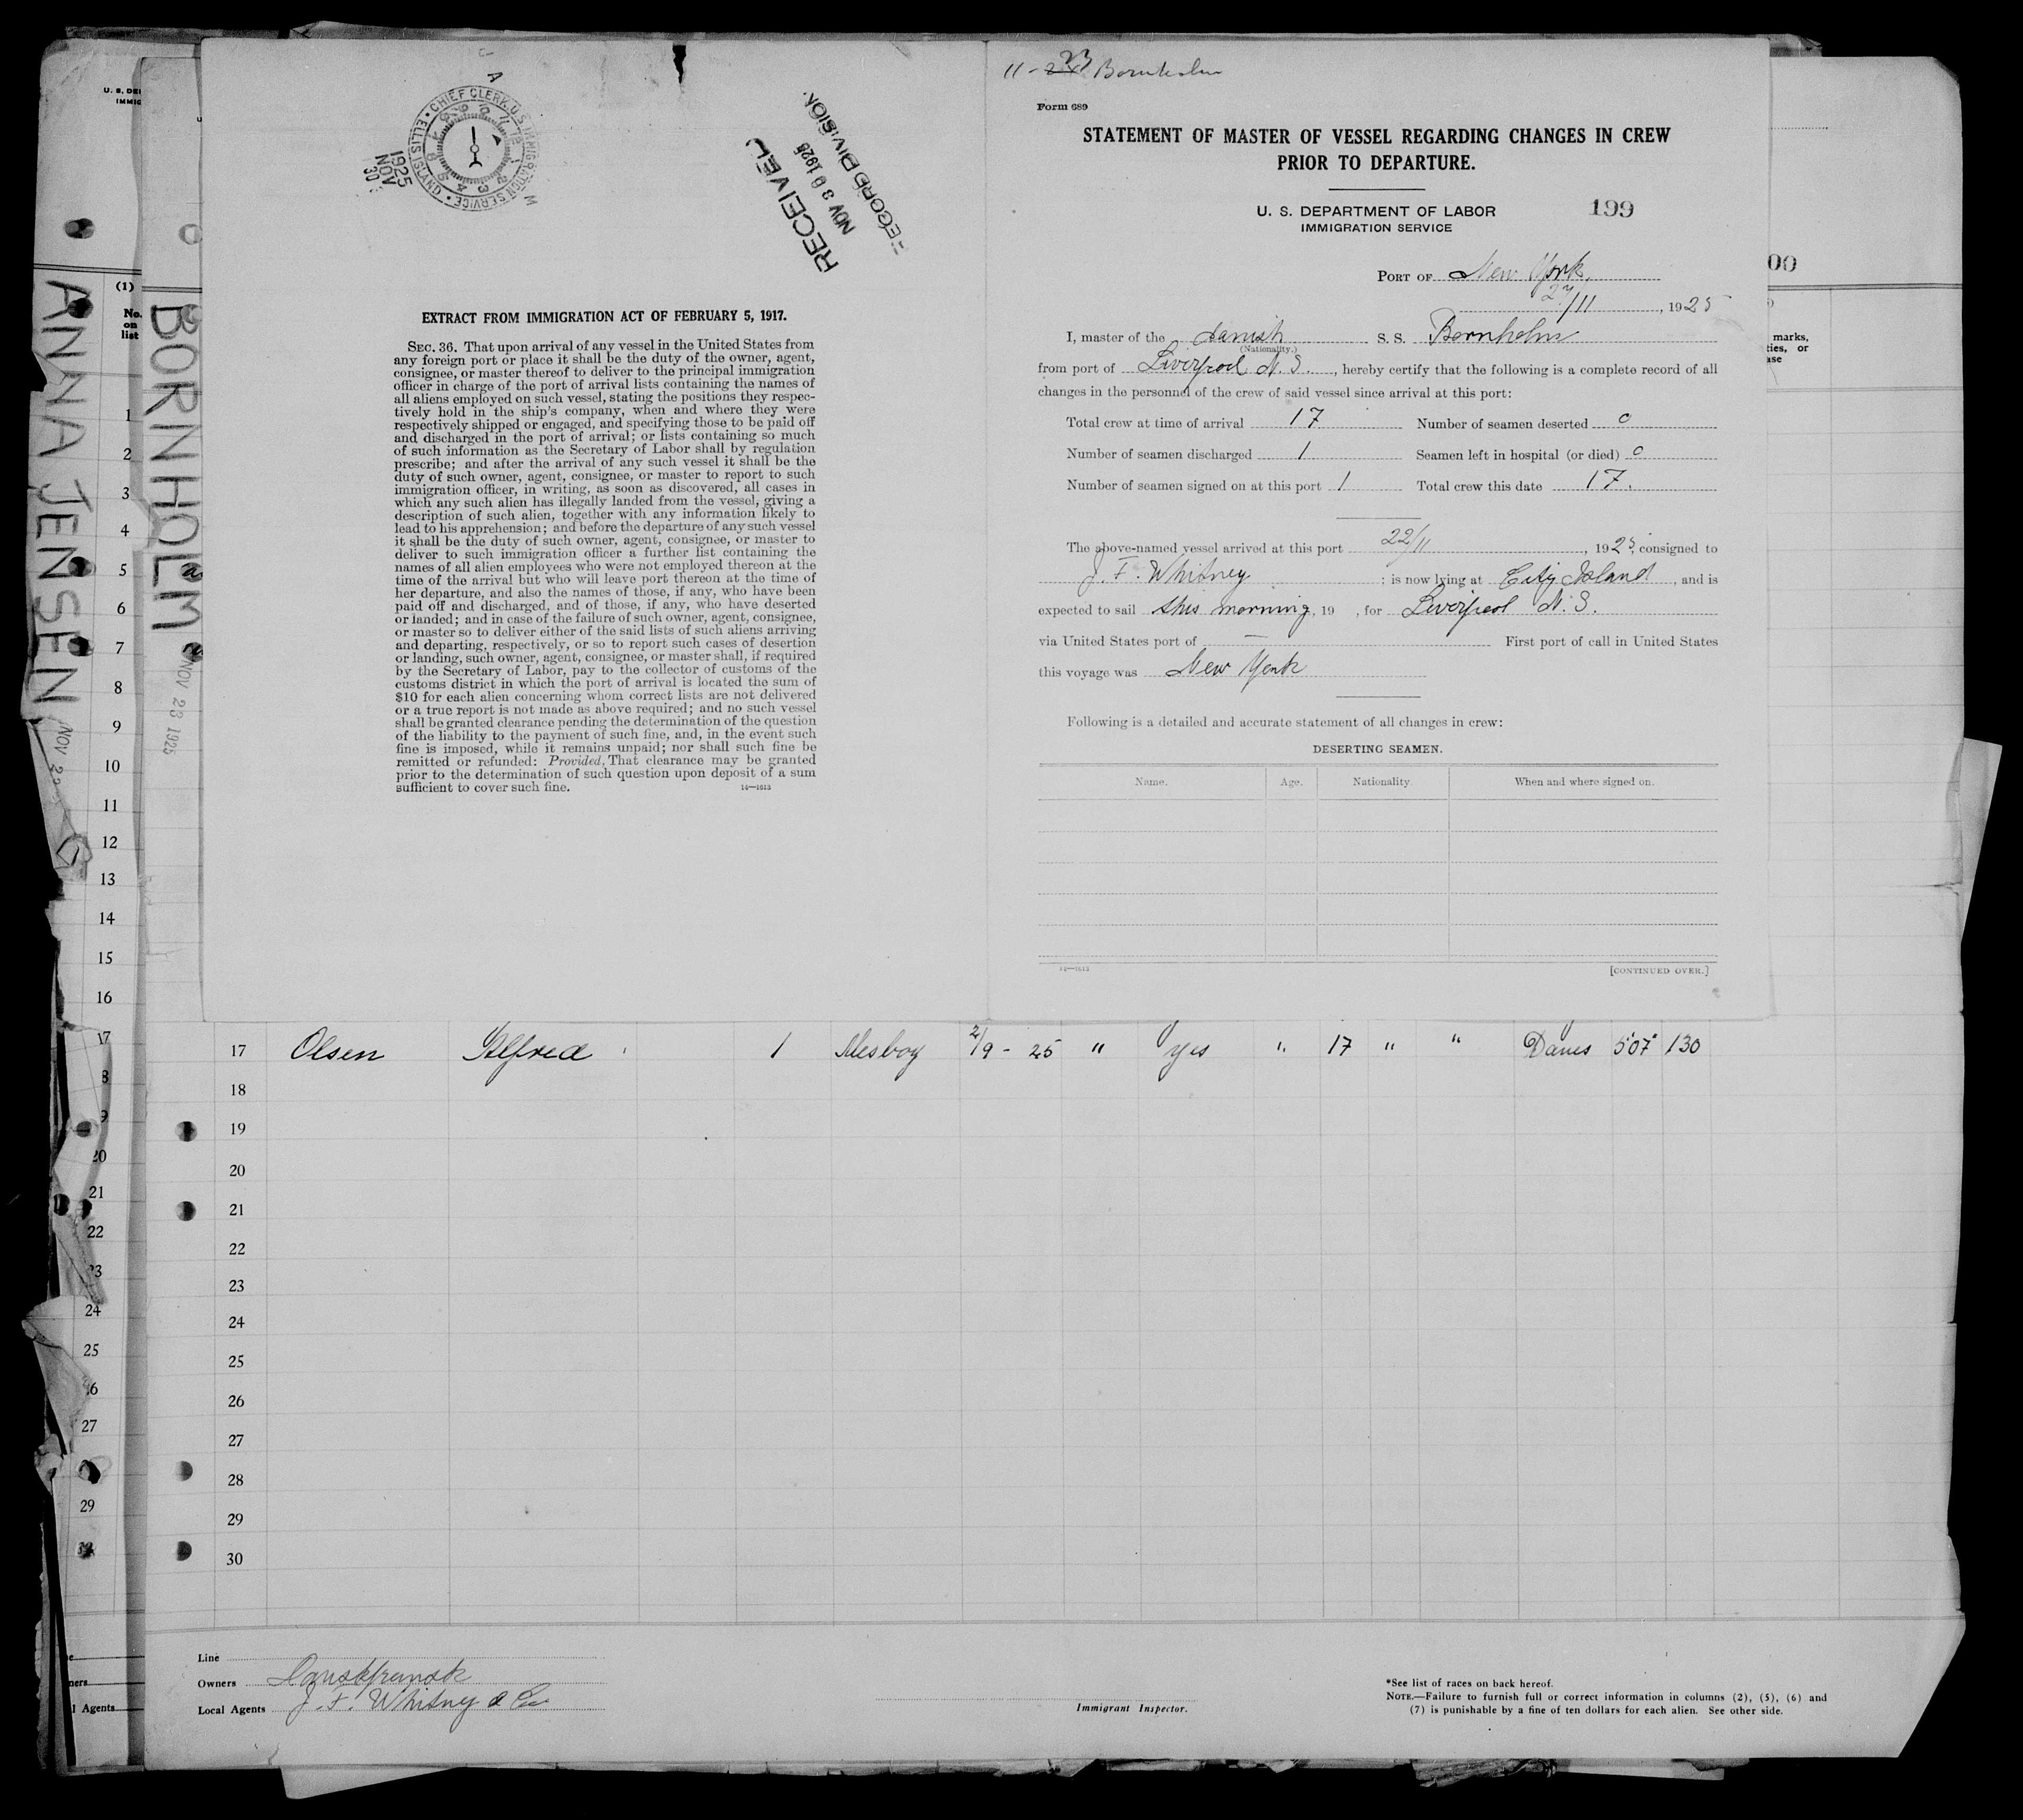 U. S. DE
IMMIG
(1)
No.
on
list
ANNA JENSEN
NOV 22
BORNHOLM
NOV 23 1925
CHIEF CLERK, U.S. IMMIGRATION SERVICE
ELLIS ISLAND
1925
NOV
30
RECEIVED
NOV 30 1925
RECORD DIVISION
EXTRACT FROM IMMIGRATION ACT OF FEBRUARY 5, 1917.
SEC. 36. That upon arrival of any vessel in the United States from
any foreign port or place it shall be the duty of the owner, agent,
consignee, or master thereof to deliver to the principal immigration
officer in charge of the port of arrival lists containing the names of
all aliens employed on such vessel, stating the positions they respec-
tively hold in the ship's company, when and where they were
respectively shipped or engaged, and specifying those to be paid off
and discharged in the port of arrival; or lists containing so much
of such information as the Secretary of Labor shall by regulation
prescribe; and after the arrival of any such vessel it shall be the
duty of such owner, agent, consignee, or master to report to such
immigration officer, in writing, as soon as discovered, all cases in
which any such alien has illegally landed from the vessel, giving a
description of such alien, together with any information likely to
lead to his apprehension; and before the departure of any such vessel
it shall be the duty of such owner, agent, consignee, or master to
deliver to such immigration officer a further list containing the
names of all alien employees who were not employed thereon at the
time of the arrival but who will leave port thereon at the time of
her departure, and also the names of those, if any, who have been
paid off and discharged, and of those, if any, who have deserted
or landed; and in case of the failure of such owner, agent, consignee,
or master so to deliver either of the said lists of such aliens arriving
and departing, respectively, or so to report such cases of desertion
or landing, such owner, agent, consignee, or master shall, if required
by the Secretary of Labor, pay to the collector of customs of the
customs district in which the port of arrival is located the sum of
$10 for each alien concerning whom correct lists are not delivered
or a true report is not made as above required; and no such vessel
shall be granted clearance pending the determination of the question
of the liability to the payment of such fine, and, in the event such
fine is imposed, while it remains unpaid; nor shall such fine be
remitted or refunded: Provided, That clearance may be granted
prior to the determination of such question upon deposit of a sum
sufficient to cover such fine.
14—1613
11-23 Bornholm
Form 689
STATEMENT OF MASTER OF VESSEL REGARDING CHANGES IN CREW
PRIOR TO DEPARTURE.
U. S. DEPARTMENT OF LABOR
IMMIGRATION SERVICE
199
PORT OF New York,
27/11, 1925
I, master of the danish S. S. Bornholm
(Nationality.)
from port of Liverpool N. S., hereby certify that the following is a complete record of all
changes in the personnel of the crew of said vessel since arrival at this port:
Total crew at time of arrival 17 Number of seamen deserted 0
Number of seamen discharged 1 Seamen left in hospital (or died) 0
Number of seamen signed on at this port 1 Total crew this date 17.
The above-named vessel arrived at this port 22/11, 1925, consigned to
J. F. Whitney; is now lying at City Island, and is
expected to sail this morning, 19 , for Liverpool N. S.
via United States port of — First port of call in United States
this voyage was New York
Following is a detailed and accurate statement of all changes in crew:
DESERTING SEAMEN.
Name. Age. Nationality. When and where signed on.
14—1613 [CONTINUED OVER.]
00
marks,
ties, or
ase
1
2
3
4
5
6
7
8
9
10
11
12
13
14
15
16
17
8
9
20
21
22
23
24
25
26
27
29
17 Olsen Alfred 1 Mesboy 2/9 - 25 " yes " 17 " " Danes 5'07" 130
18
19
20
21
22
23
24
25
26
27
28
29
30
Line
Owners Dansk fransk
Local Agents J. F. Whitney & Co
Immigrant Inspector.
*See list of races on back hereof.
NOTE.—Failure to furnish full or correct information in columns (2), (5), (6) and
(7) is punishable by a fine of ten dollars for each alien. See other side.
e
ners
l Agents